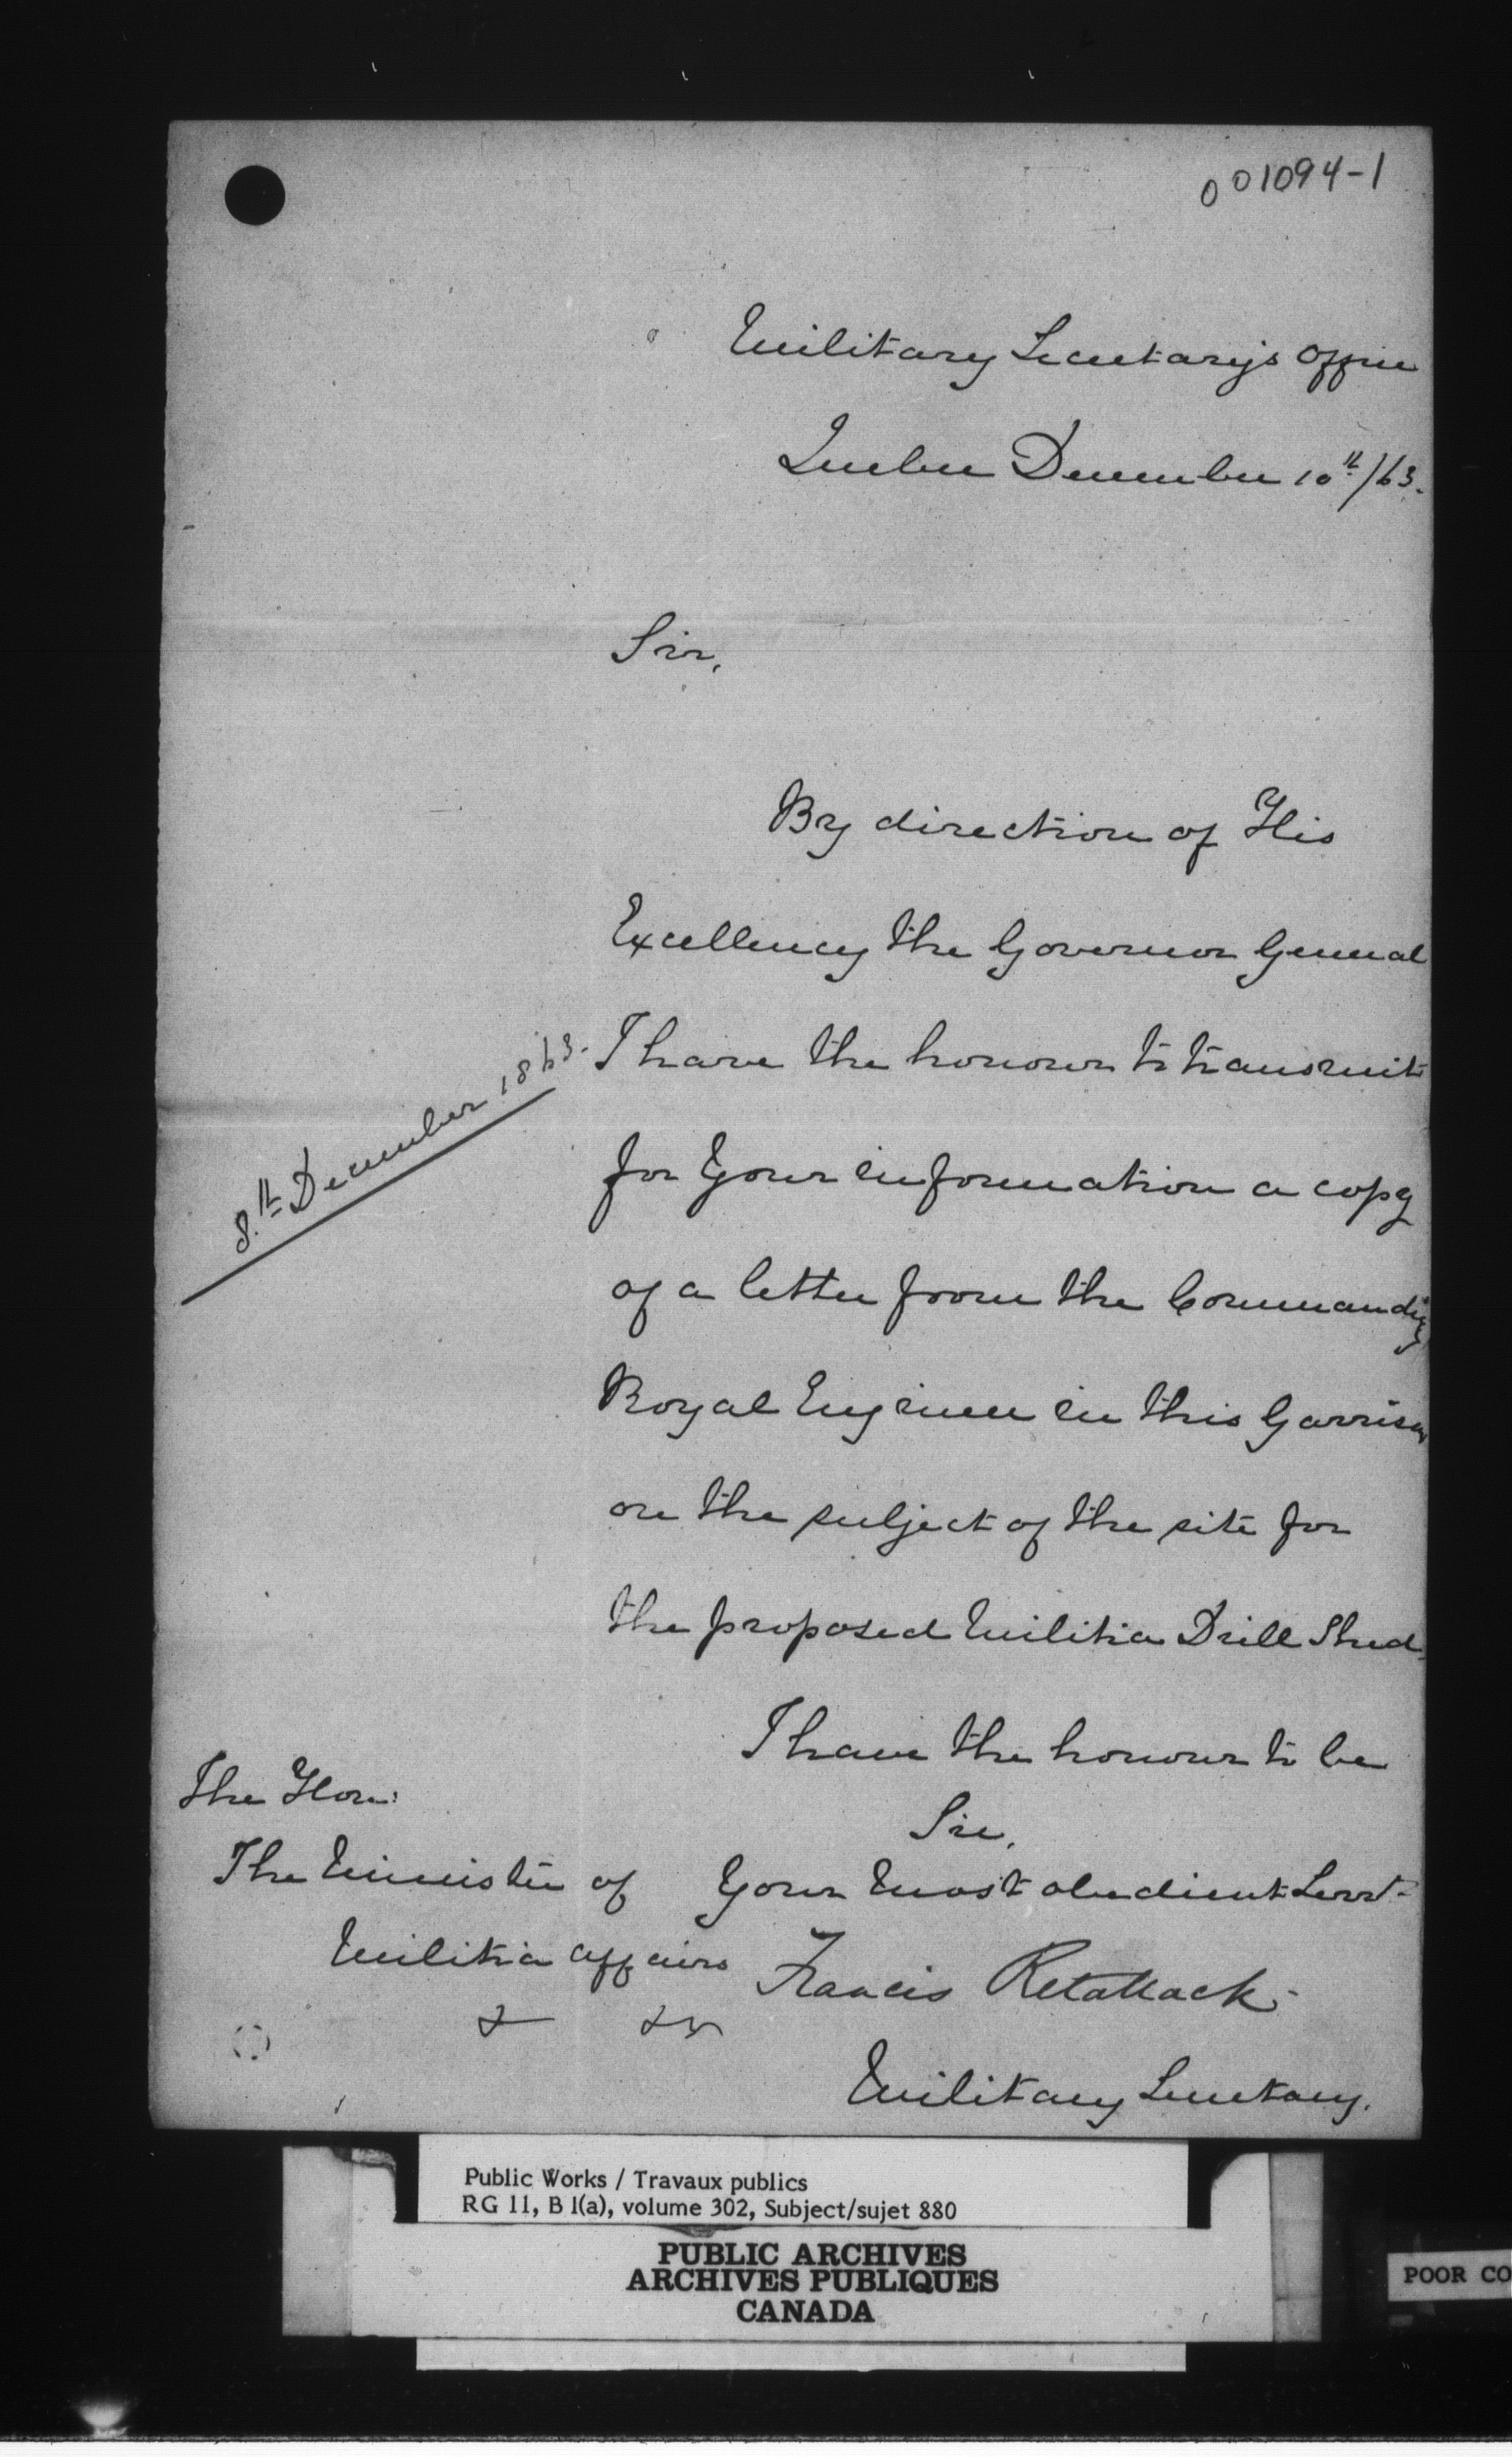 001094-1
Military Secretary's Office
Quebec December 10th/63.
Sir,
By direction of His
Excellency the Governor General
I have the honour to transmit
8th December 1863.
for Your information a copy
of a letter from the Commanding
Royal Engineer in this Garrison
on the subject of the site for
the proposed Militia Drill Shed.
I have the honour to be
Sir,
Your Most obedient Servt.
Francis Retallack
Military Secretary.
The Hon:
The Minister of
Militia Affairs
& &c
Public Works / Travaux publics
RG 11, B 1(a), volume 302, Subject/sujet 880
PUBLIC ARCHIVES
ARCHIVES PUBLIQUES
CANADA
POOR CO